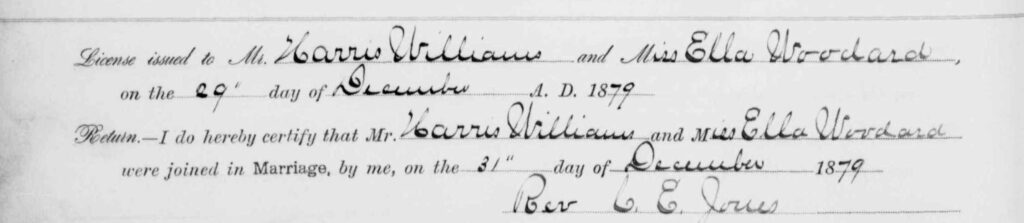 License issued to Mr. Harris Williams and Miss Ella Woodard,
on the 29" day of December A. D. 1879
Return.—I do hereby certify that Mr. Harris Williams and Miss Ella Woodard
were joined in Marriage, by me, on the 31" day of December 1879
Rev C. E. Jones